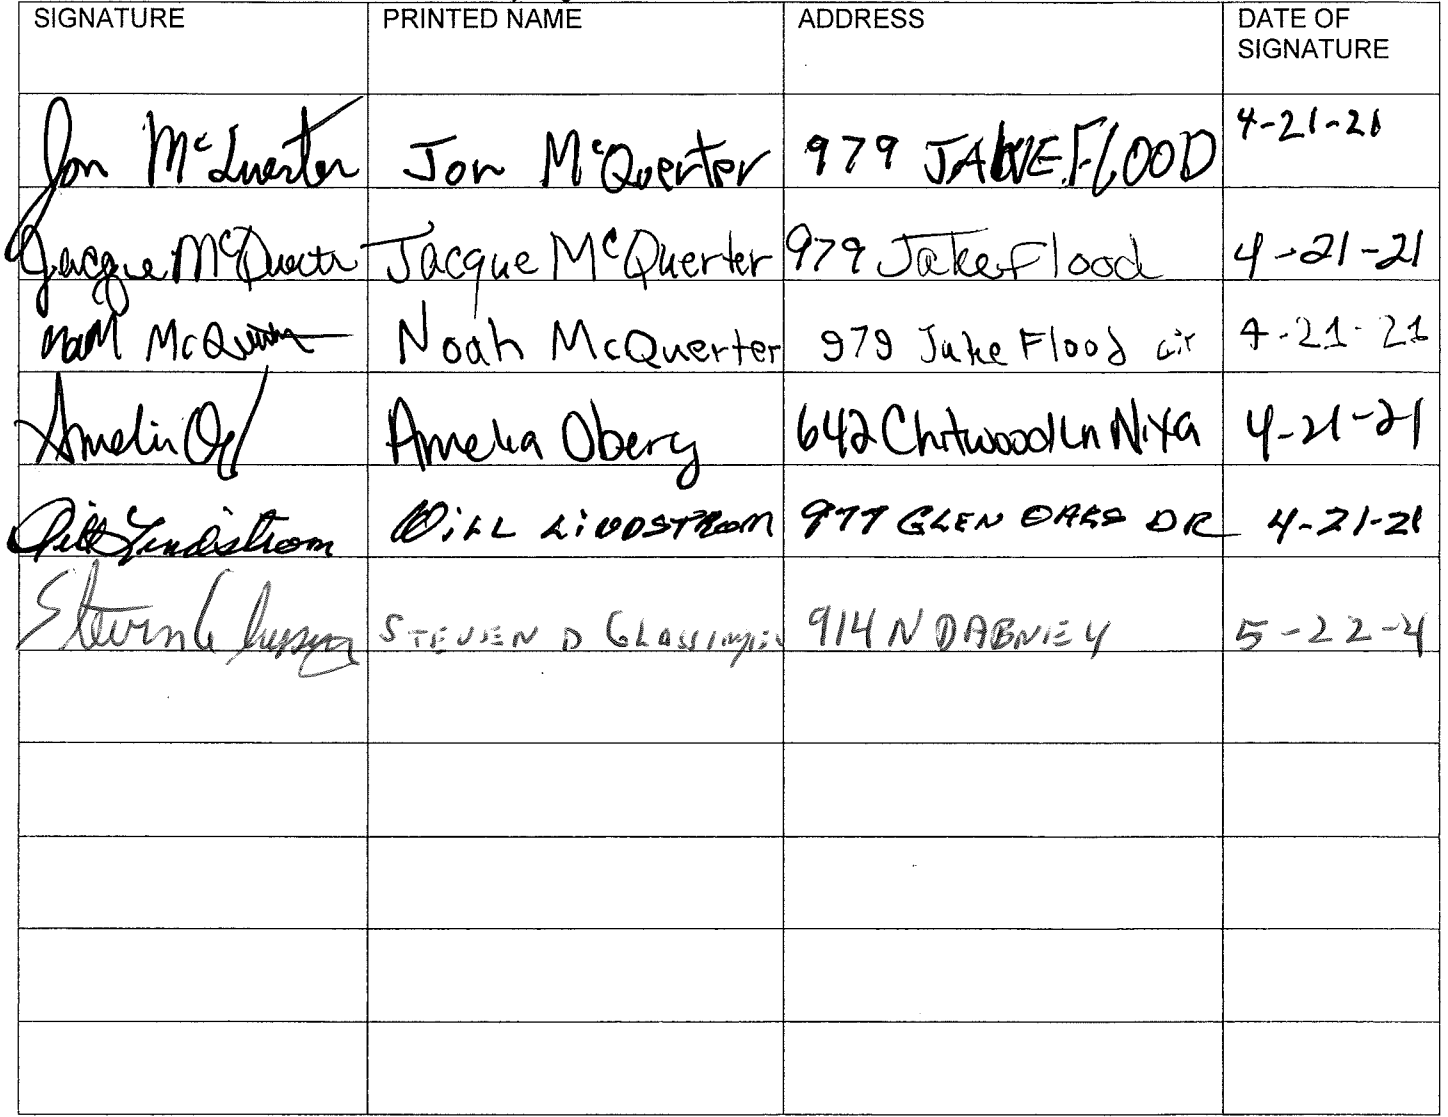 SIGNATURE PRINTED NAME ADDRESS DATE OF
SIGNATURE
Jon McQuerter Jon McQuerter 979 JAKE FLOOD 4-21-21
Jacque McQuerter Jacque McQuerter 979 Jake Flood 4-21-21
Noah McQuerter Noah McQuerter 979 Jake Flood cir 4-21-21
Amelia Amelia Oberg 642 Chitwood Ln Nixa 4-21-21
Will Lindstrom WILL LINDSTROM 977 GLEN OAKS DR 4-21-21
Steven STEVEN D 914 N DABNEY 5-22-4